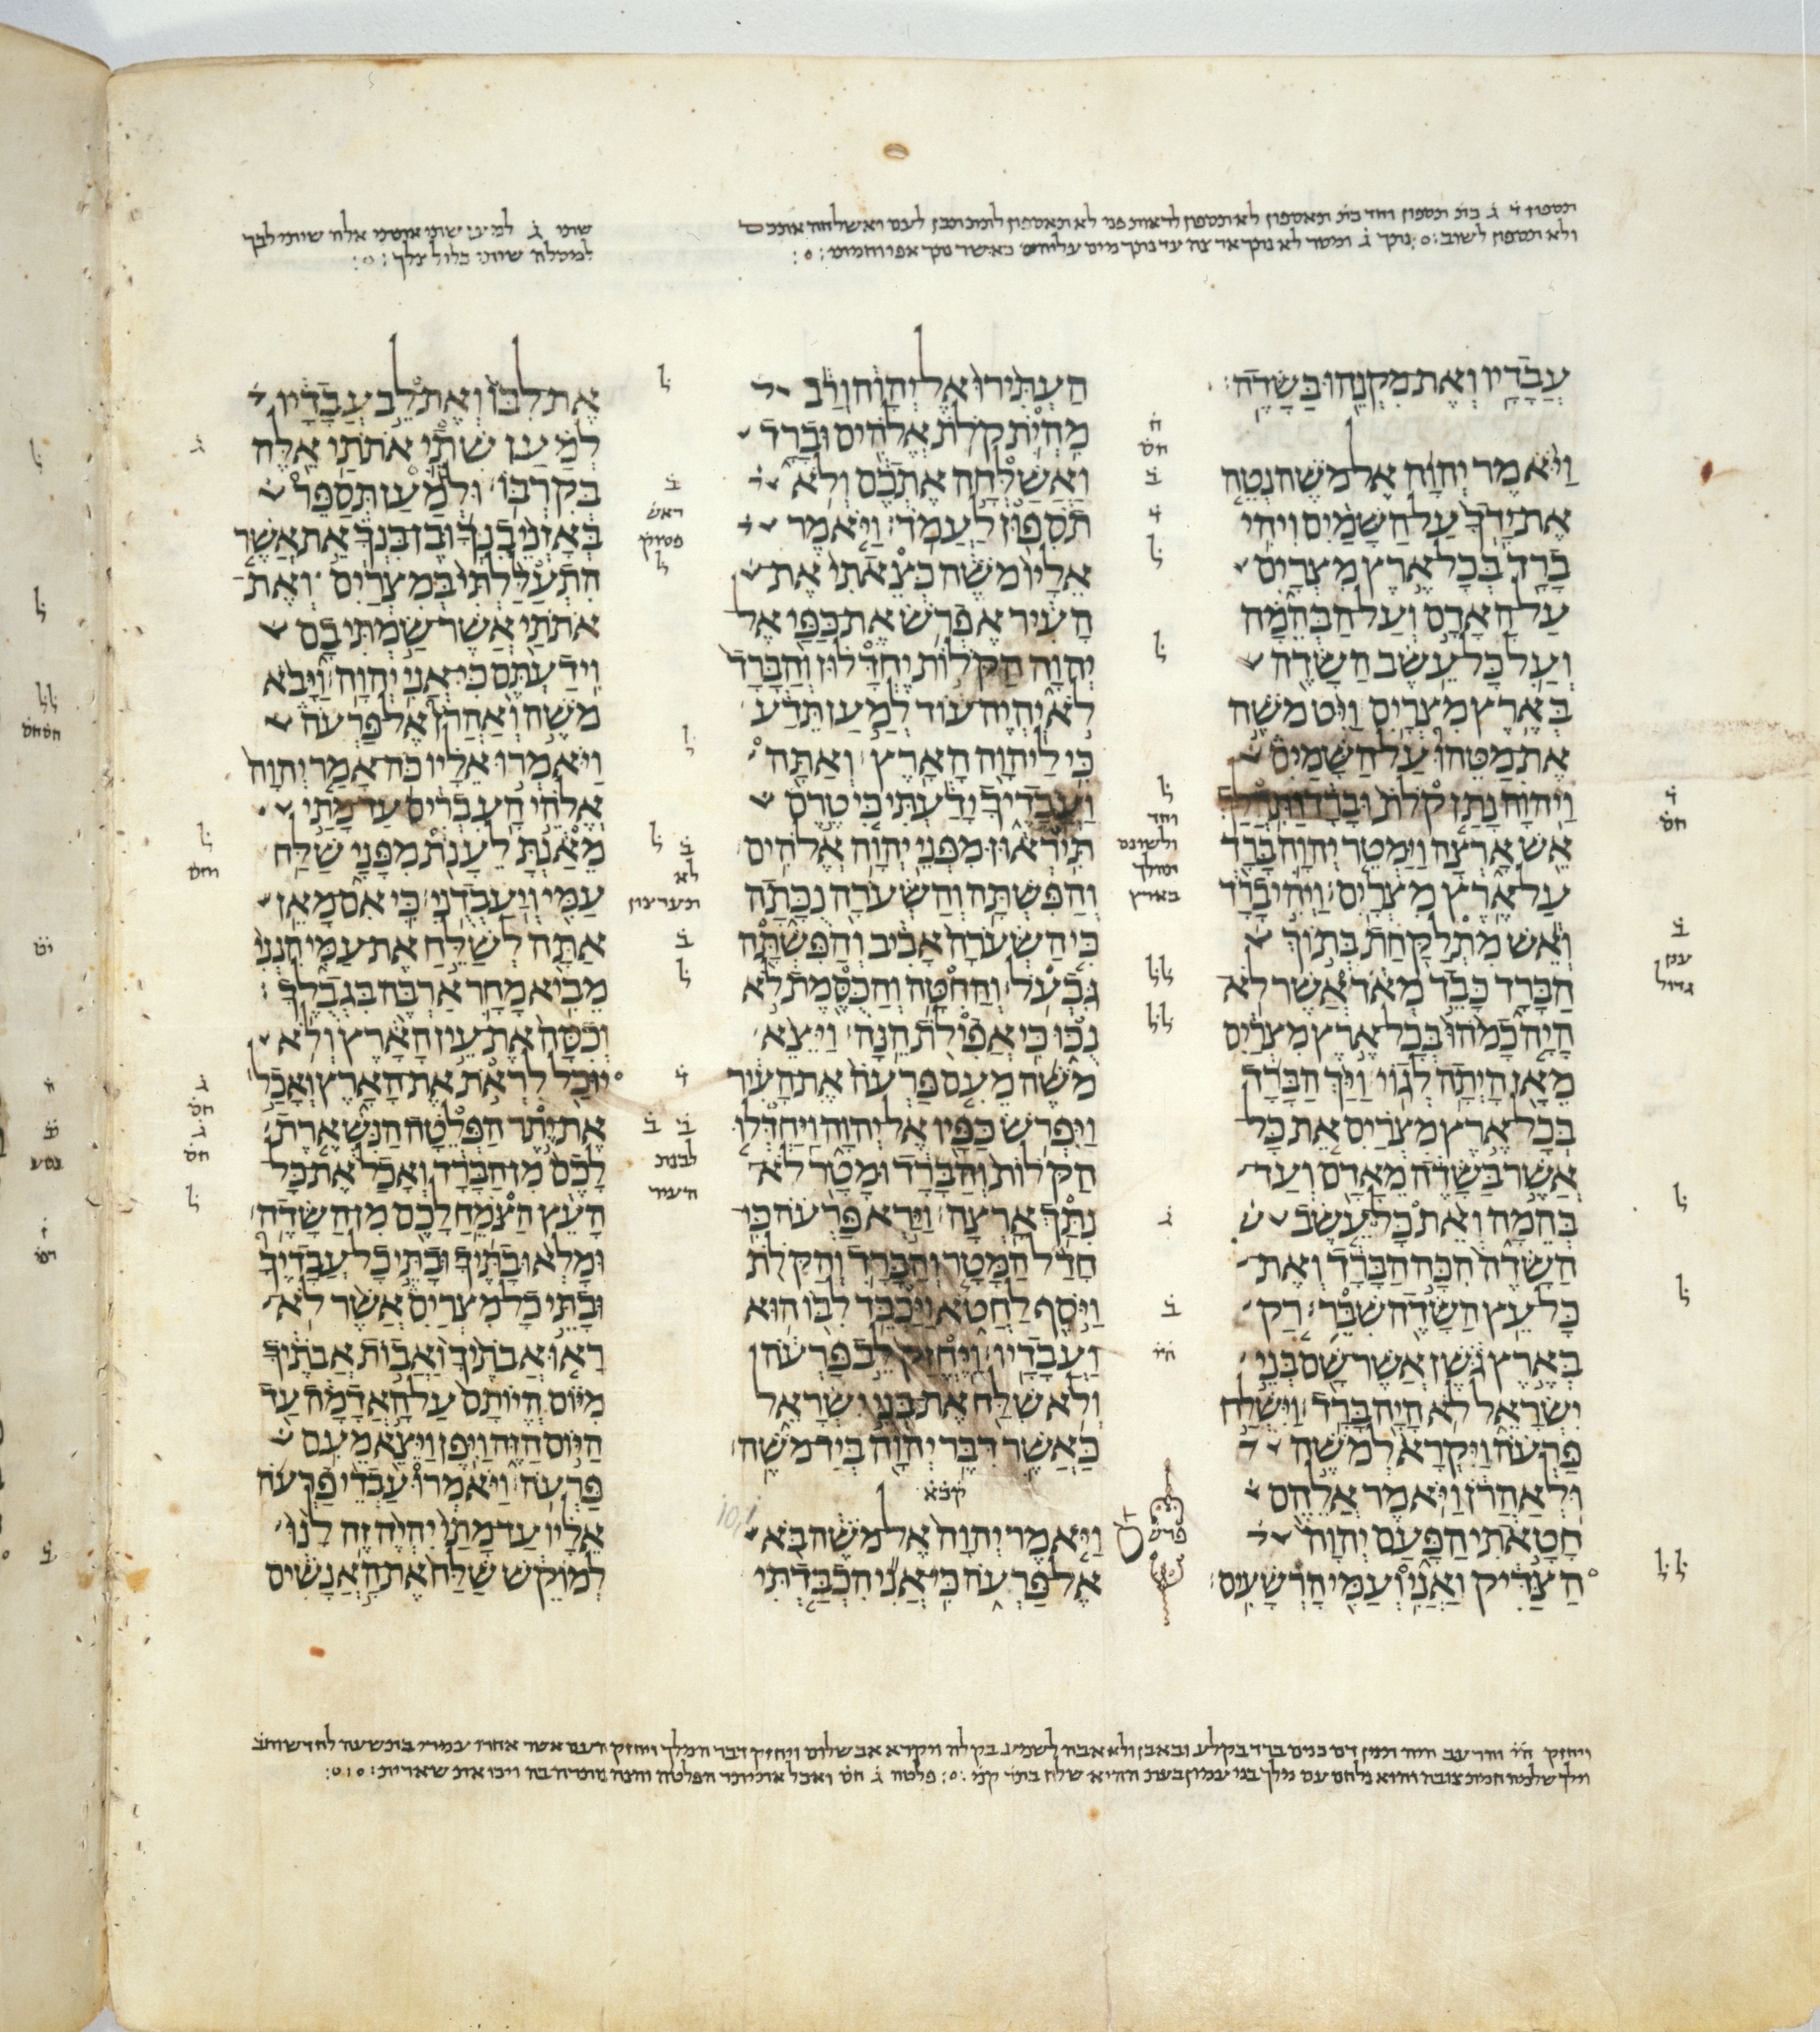 תספון ד̇ ג̇ בת תספון וחד בת תאספון לא תספון לראות פני לא תאספון לתת תבן לעם ואשלחה אתכם
ולא תספון לשוב׃ נתך ג̇ ומטר לא נתך ארצה עד נתך מים עליהם כאשר נתך אפי וחמתי׃
שתי ג̇ למען שתי אתתי אלה שיתי לבך
למסלה שיתי כלול צלך׃
עֲבָדָיו וְאֶת מִקְנֵהוּ בַּשָּׂדֶה׃
וַיֹּאמֶר יְהוָה אֶל מֹשֶׁה נְטֵה
אֶת יָדְךָ עַל הַשָּׁמַיִם וִיהִי
בָרָד בְּכָל אֶרֶץ מִצְרָיִם
עַל הָאָדָם וְעַל הַבְּהֵמָה
וְעַל כָּל עֵשֶׂב הַשָּׂדֶה
בְּאֶרֶץ מִצְרָיִם׃ וַיֵּט מֹשֶׁה
אֶת מַטֵּהוּ עַל הַשָּׁמַיִם
וַיהוָה נָתַן קֹלֹת וּבָרָד וַתִּהֲלַךְ
אֵשׁ אָרְצָה וַיַּמְטֵר יְהוָה בָּרָד
עַל אֶרֶץ מִצְרָיִם׃ וַיְהִי בָרָד
וְאֵשׁ מִתְלַקַּחַת בְּתוֹךְ
הַבָּרָד כָּבֵד מְאֹד אֲשֶׁר לֹא
הָיָה כָמֹהוּ בְּכָל אֶרֶץ מִצְרַיִם
מֵאָז הָיְתָה לְגוֹי׃ וַיַּךְ הַבָּרָד
בְּכָל אֶרֶץ מִצְרַיִם אֵת כָּל
אֲשֶׁר בַּשָּׂדֶה מֵאָדָם וְעַד
בְּהֵמָה וְאֵת כָּל עֵשֶׂב
הַשָּׂדֶה הִכָּה הַבָּרָד וְאֶת
כָּל עֵץ הַשָּׂדֶה שִׁבֵּר׃ רַק
בְּאֶרֶץ גֹּשֶׁן אֲשֶׁר שָׁם בְּנֵי
יִשְׂרָאֵל לֹא הָיָה בָּרָד׃ וַיִּשְׁלַח
פַּרְעֹה וַיִּקְרָא לְמֹשֶׁה
וּלְאַהֲרֹן וַיֹּאמֶר אֲלֵהֶם
חָטָאתִי הַפָּעַם יְהוָה
הַצַּדִּיק וַאֲנִי וְעַמִּי הָרְשָׁעִים׃
הַעְתִּירוּ אֶל יְהוָה וְרַב
מִהְיֹת קֹלֹת אֱלֹהִים וּבָרָד
וַאֲשַׁלְּחָה אֶתְכֶם וְלֹא
תֹסִפוּן לַעֲמֹד׃ וַיֹּאמֶר
אֵלָיו מֹשֶׁה כְּצֵאתִי אֶת
הָעִיר אֶפְרֹשׂ אֶת כַּפַּי אֶל
יְהוָה הַקֹּלוֹת יֶחְדָּלוּן וְהַבָּרָד
לֹא יִהְיֶה עוֹד לְמַעַן תֵּדַע
כִּי לַיהוָה הָאָרֶץ׃ וְאַתָּה
וַעֲבָדֶיךָ יָדַעְתִּי כִּי טֶרֶם
תִּירְאוּן מִפְּנֵי יְהוָה אֱלֹהִים׃
וְהַפִּשְׁתָּה וְהַשְּׂעֹרָה נֻכָּתָה
כִּי הַשְּׂעֹרָה אָבִיב וְהַפִּשְׁתָּה
גִּבְעֹל׃ וְהַחִטָּה וְהַכֻּסֶּמֶת לֹא
נֻכּוּ כִּי אֲפִילֹת הֵנָּה׃ וַיֵּצֵא
מֹשֶׁה מֵעִם פַּרְעֹה אֶת הָעִיר
וַיִּפְרֹשׂ כַּפָּיו אֶל יְהוָה וַיַּחְדְּלוּ
הַקֹּלוֹת וְהַבָּרָד וּמָטָר לֹא
נִתַּךְ אָרְצָה׃ וַיַּרְא פַּרְעֹה כִּי
חָדַל הַמָּטָר וְהַבָּרָד וְהַקֹּלֹת
וַיֹּסֶף לַחֲטֹא וַיַּכְבֵּד לִבּוֹ הוּא
וַעֲבָדָיו׃ וַיֶּחֱזַק לֵב פַּרְעֹה
וְלֹא שִׁלַּח אֶת בְּנֵי יִשְׂרָאֵל
כַּאֲשֶׁר דִּבֶּר יְהוָה בְּיַד מֹשֶׁה׃
פרש
וַיֹּאמֶר יְהוָה אֶל מֹשֶׁה בֹּא
אֶל פַּרְעֹה כִּי אֲנִי הִכְבַּדְתִּי
אֶת לִבּוֹ וְאֶת לֵב עֲבָדָיו
לְמַעַן שִׁתִי אֹתֹתַי אֵלֶּה
בְּקִרְבּוֹ׃ וּלְמַעַן תְּסַפֵּר
בְּאָזְנֵי בִנְךָ וּבֶן בִּנְךָ אֵת אֲשֶׁר
הִתְעַלַּלְתִּי בְּמִצְרַיִם וְאֶת
אֹתֹתַי אֲשֶׁר שַׂמְתִּי בָם
וִידַעְתֶּם כִּי אֲנִי יְהוָה׃ וַיָּבֹא
מֹשֶׁה וְאַהֲרֹן אֶל פַּרְעֹה
וַיֹּאמְרוּ אֵלָיו כֹּה אָמַר יְהוָה
אֱלֹהֵי הָעִבְרִים עַד מָתַי
מֵאַנְתָּ לֵעָנֹת מִפָּנָי שַׁלַּח
עַמִּי וְיַעַבְדֻנִי׃ כִּי אִם מָאֵן
אַתָּה לְשַׁלֵּחַ אֶת עַמִּי הִנְנִי
מֵבִיא מָחָר אַרְבֶּה בִּגְבֻלֶךָ׃
וְכִסָּה אֶת עֵין הָאָרֶץ וְלֹא
יוּכַל לִרְאֹת אֶת הָאָרֶץ וְאָכַל
אֶת יֶתֶר הַפְּלֵטָה הַנִּשְׁאֶרֶת
לָכֶם מִן הַבָּרָד וְאָכַל אֶת כָּל
הָעֵץ הַצֹּמֵחַ לָכֶם מִן הַשָּׂדֶה׃
וּמָלְאוּ בָתֶּיךָ וּבָתֵּי כָל עֲבָדֶיךָ
וּבָתֵּי כָל מִצְרַיִם אֲשֶׁר לֹא
רָאוּ אֲבֹתֶיךָ וַאֲבוֹת אֲבֹתֶיךָ
מִיּוֹם הֱיוֹתָם עַל הָאֲדָמָה עַד
הַיּוֹם הַזֶּה וַיִּפֶן וַיֵּצֵא מֵעִם
פַּרְעֹה׃ וַיֹּאמְרוּ עַבְדֵי פַרְעֹה
אֵלָיו עַד מָתַי יִהְיֶה זֶה לָנוּ
לְמוֹקֵשׁ שַׁלַּח אֶת הָאֲנָשִׁים